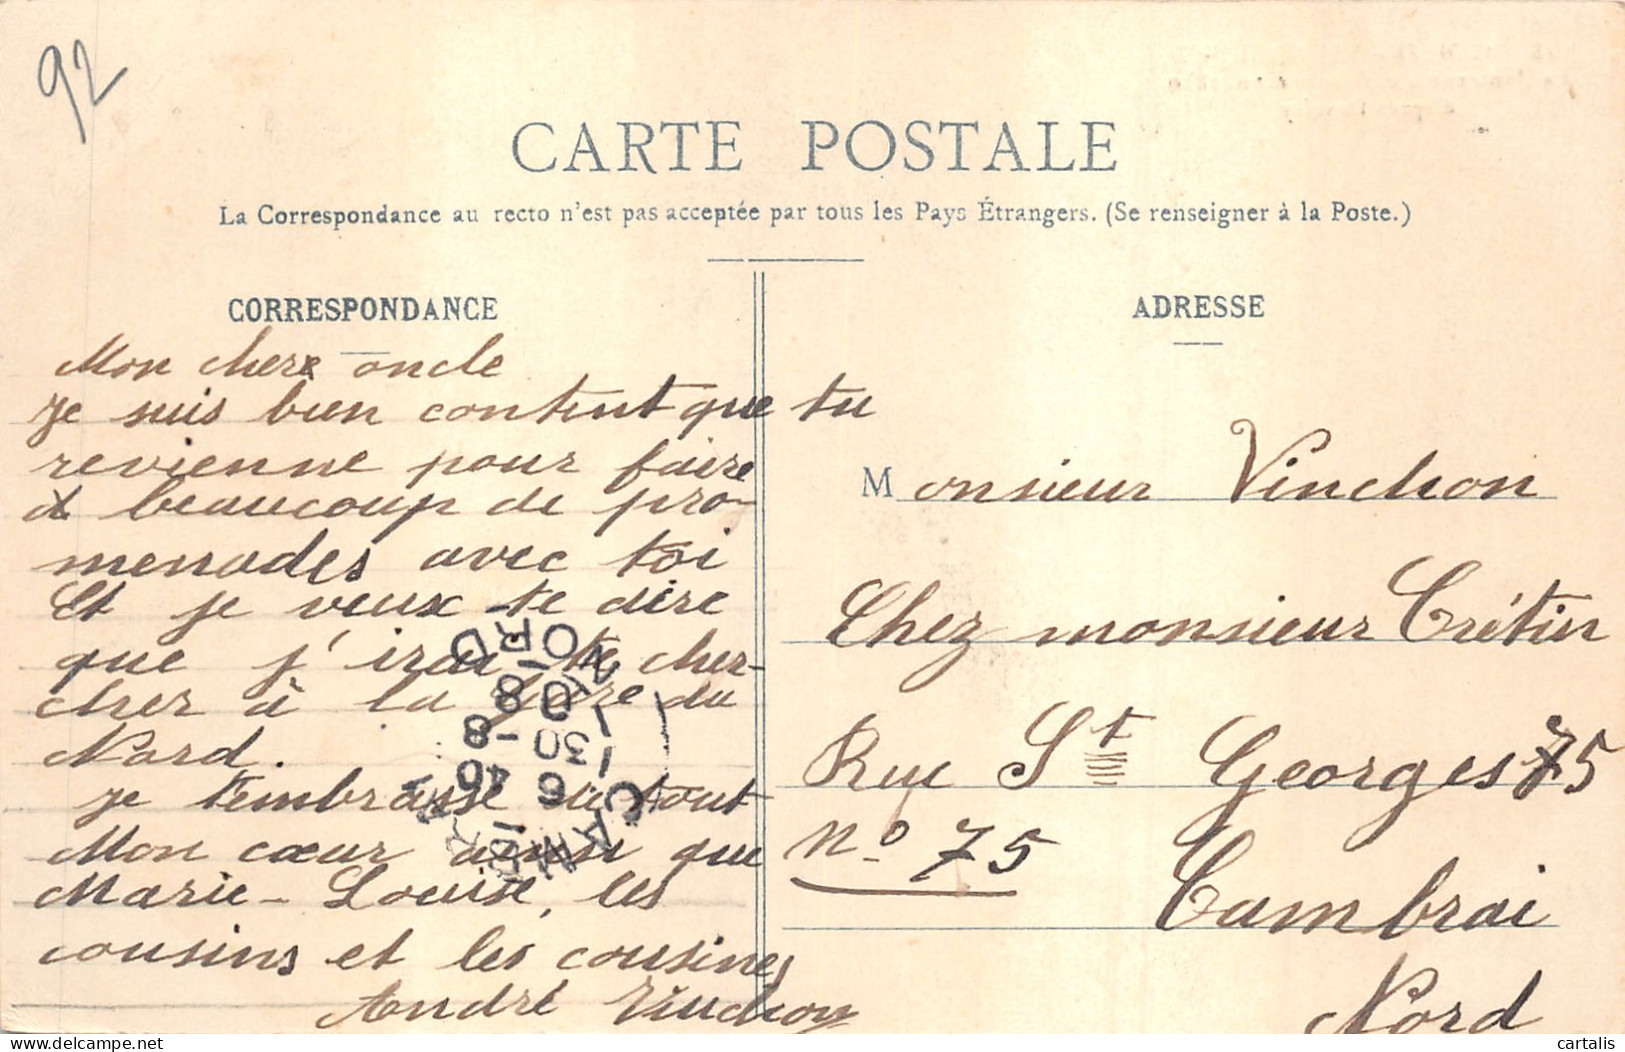 92
CARTE POSTALE
La Correspondance au recto n'est pas acceptée par tous les Pays Étrangers. (Se renseigner à la Poste.)
CORRESPONDANCE
Mon cher oncle
Je suis bien content que tu
revienne pour faire
beaucoup de pro-
menades avec toi
Et je veux te dire
que j'irai te cher-
cher à la gare du
Nord.
Je t'embrasse de tout
Mon cœur ainsi que
Marie-Louise, les
cousins et les cousines
André Vinchon
ADRESSE
Monsieur Vinchon
Chez monsieur Crétin
Rue St Georges 75
No 75
Cambrai
Nord
CAMBRAI
NORD
cartalis